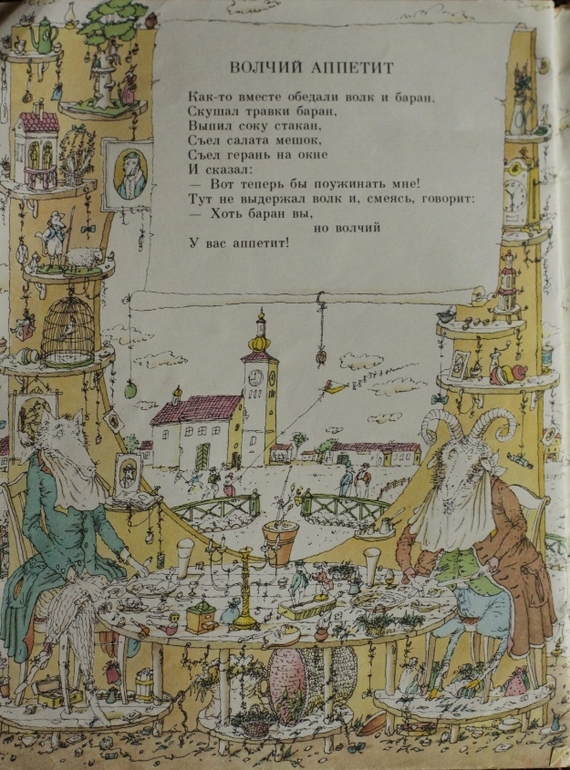 ВОЛЧИЙ АППЕТИТ
Как-то вместе обедали волк и баран.
Скушал травки баран,
Выпил соку стакан,
Съел салата мешок,
Съел герань на окне
И сказал:
— Вот теперь бы поужинать мне!
Тут не выдержал волк и, смеясь, говорит:
— Хоть баран вы,
но волчий
У вас аппетит!